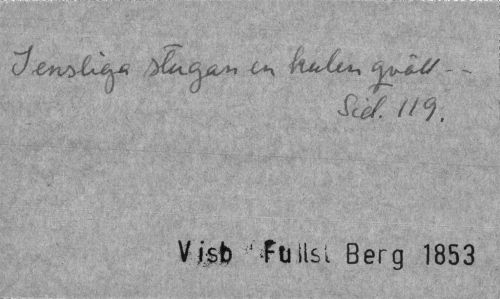 I ensliga stugan en kulen qväll --
Sid. 119.
Visb Fullst Berg 1853